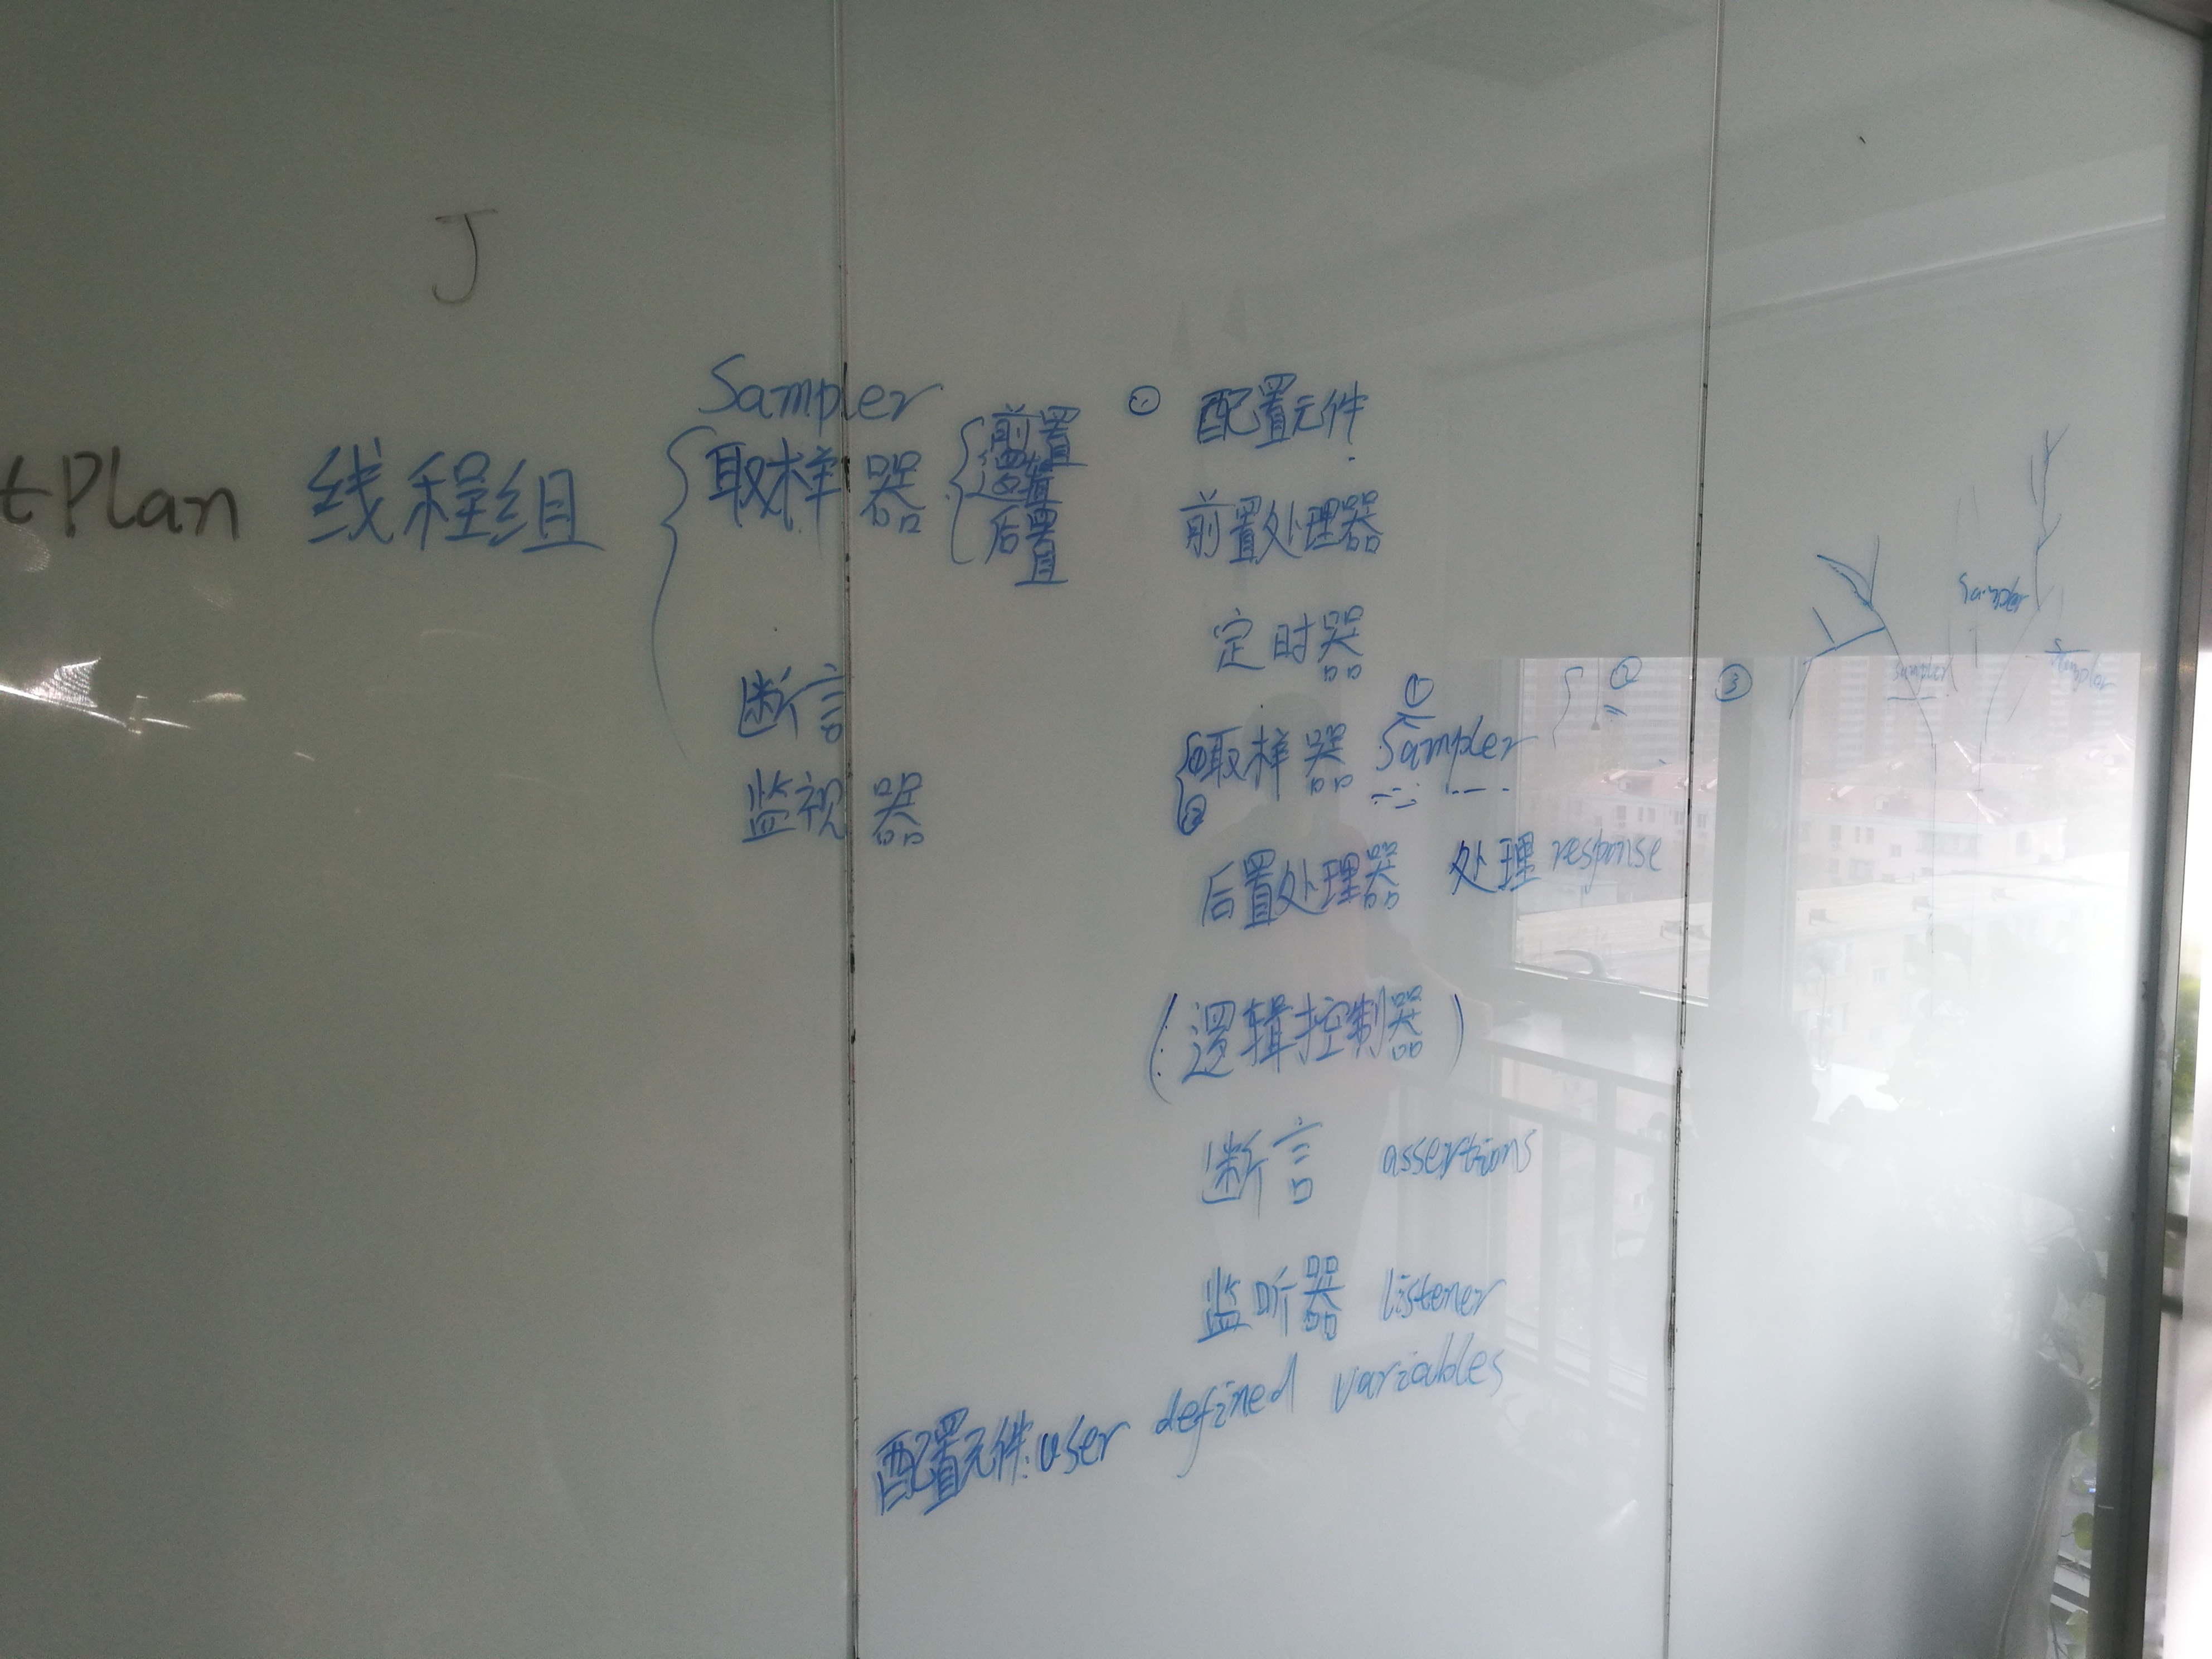 J
tPlan 线程组
Sampler
取样器
前置
逻辑
后置
断言
监视器
配置元件
前置处理器
定时器
① 取样器 Sampler ① ② ③
②
后置处理器 处理response
(逻辑控制器)
断言 assertions
监听器 listener
配置元件:user defined variables
Sampler
Sampler
Sampler